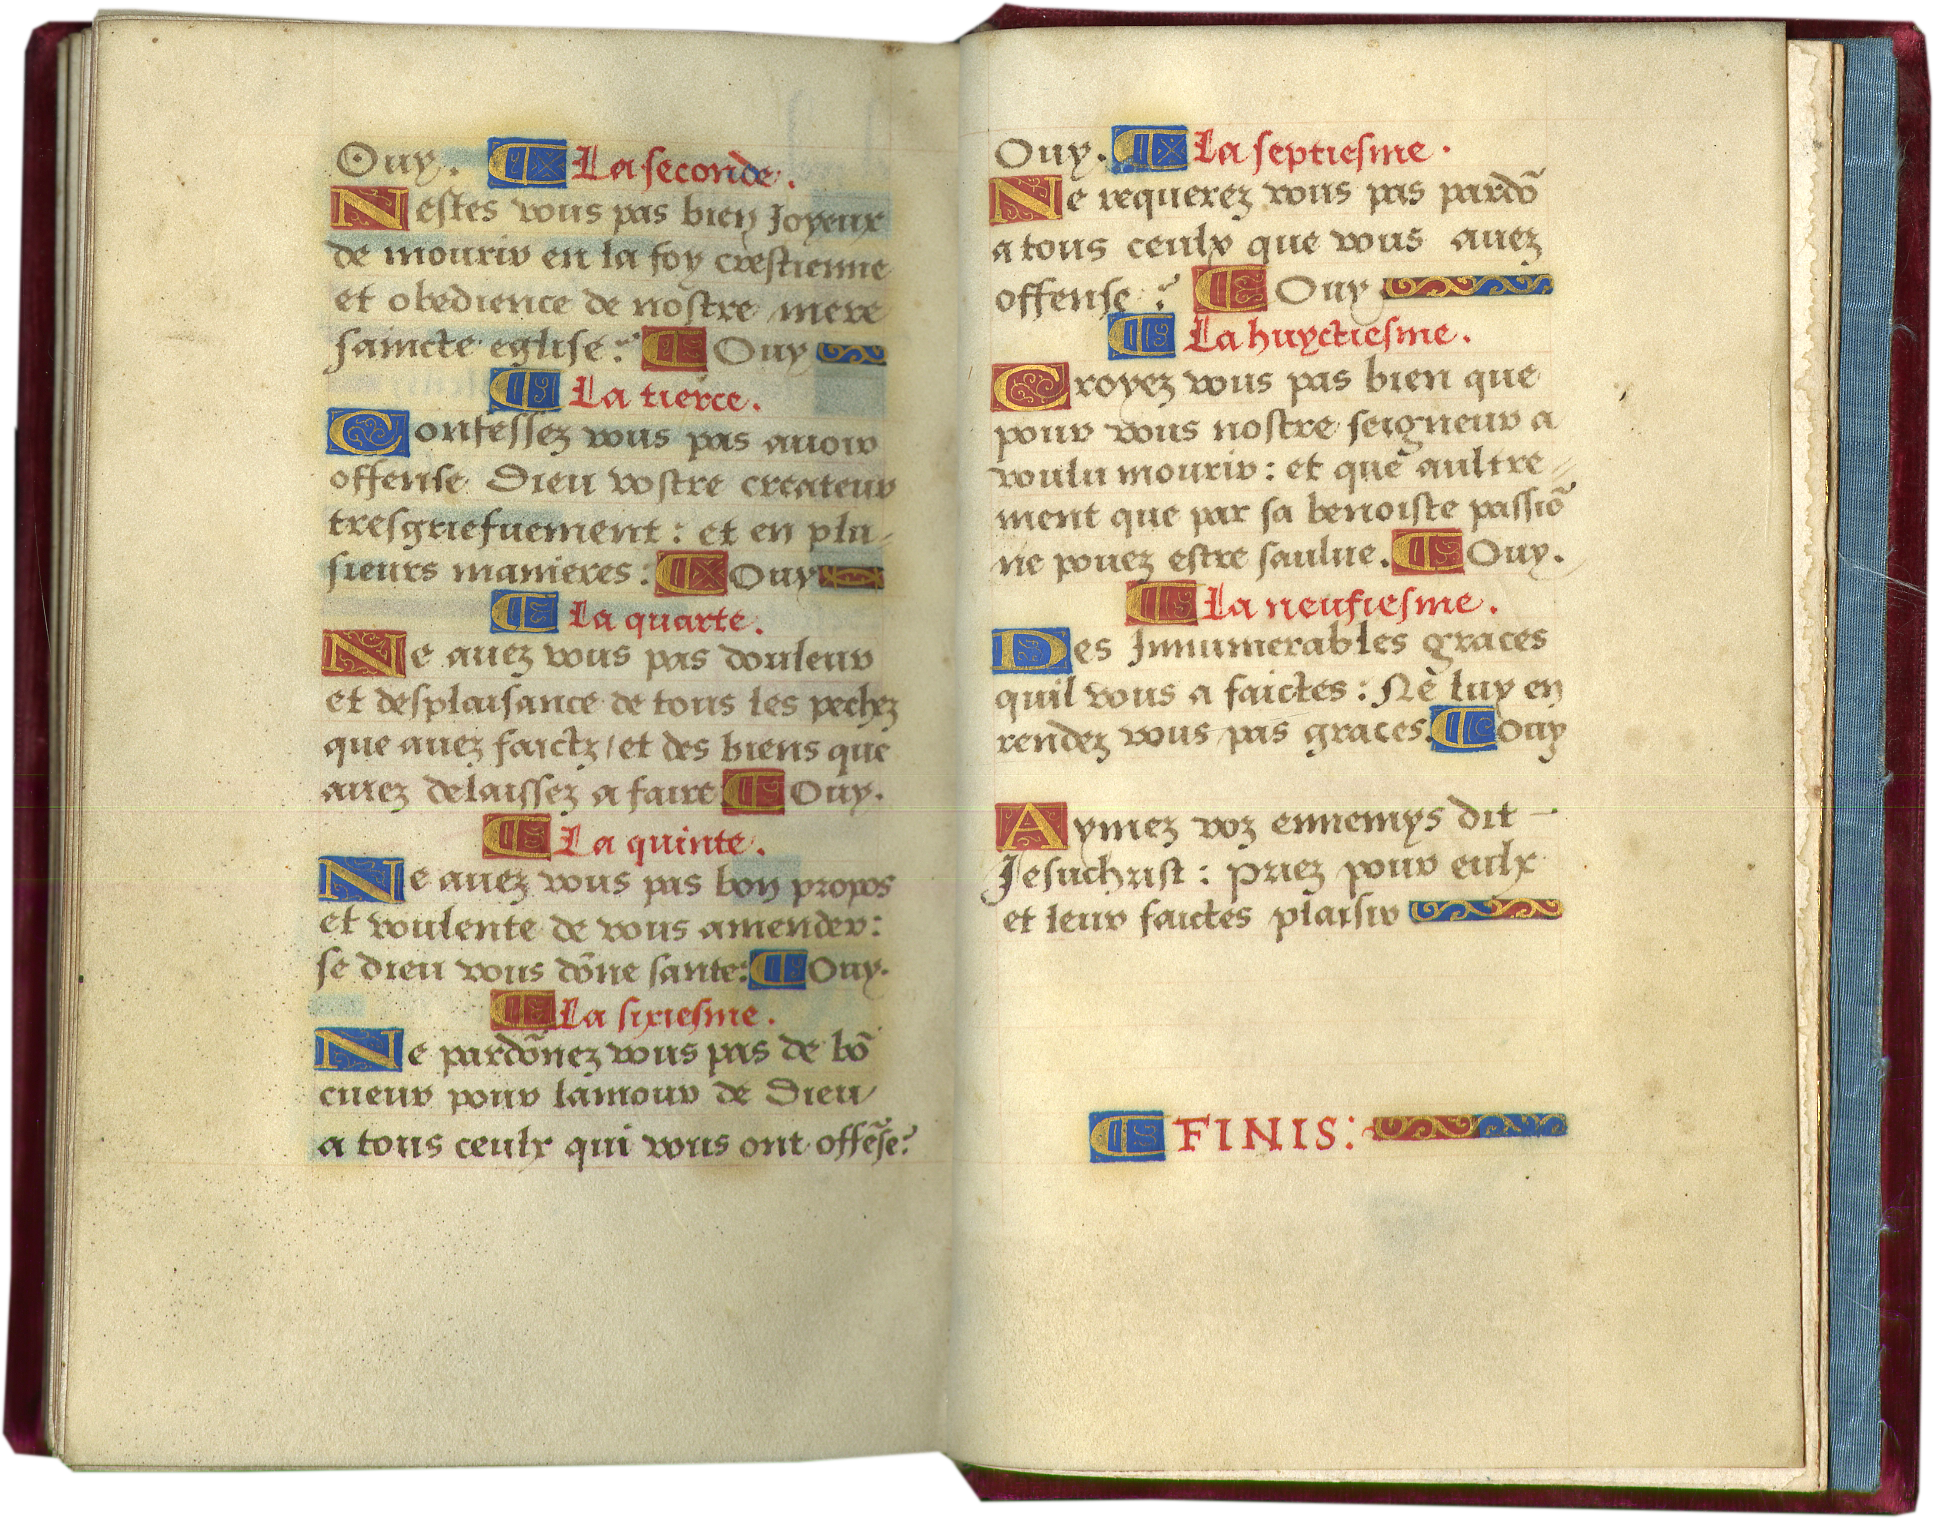 Ouy. La seconde.
Nestes vous pas bien Joyeux
de mourir en la foy crestienne
et obedience de nostre mere
saincte eglise? Ouy
La tierce.
Confessez vous pas auoir
offense Dieu vostre createur
tresgriefuement: et en plu-
sieurs manieres: Ouy
La quarte.
Ne auez vous pas douleur
et desplaisance de tous les pechez
que auez faictz/et des biens que
auez delaissez a faire Ouy.
La quinte.
Ne auez vous pas bon propos
et voulente de vous amender:
se dieu vous dõne sante: Ouy.
La sixiesme.
Ne pardõnez vous pas de bõ
cueur pour lamour de Dieu/
a tous ceulx qui vous ont offẽse?
Ouy. La septiesme.
Ne requerez vous pas pardõ
a tous ceulx que vous auez
offense? Ouy
La huyctiesme.
Croyez vous pas bien que
pour vous nostre seigneur a
voulu mourir: et que aultre=
ment que par sa benoiste passiõ
ne pouez estre saulue. Ouy.
La neufiesme.
Des Innumerables graces
quil vous a faictes: Ne luy en
rendez vous pas graces. Ouy
Aymez voz ennemys dit -
Jesuchrist: priez pour eulx
et leur faictes plaisir
FINIS: